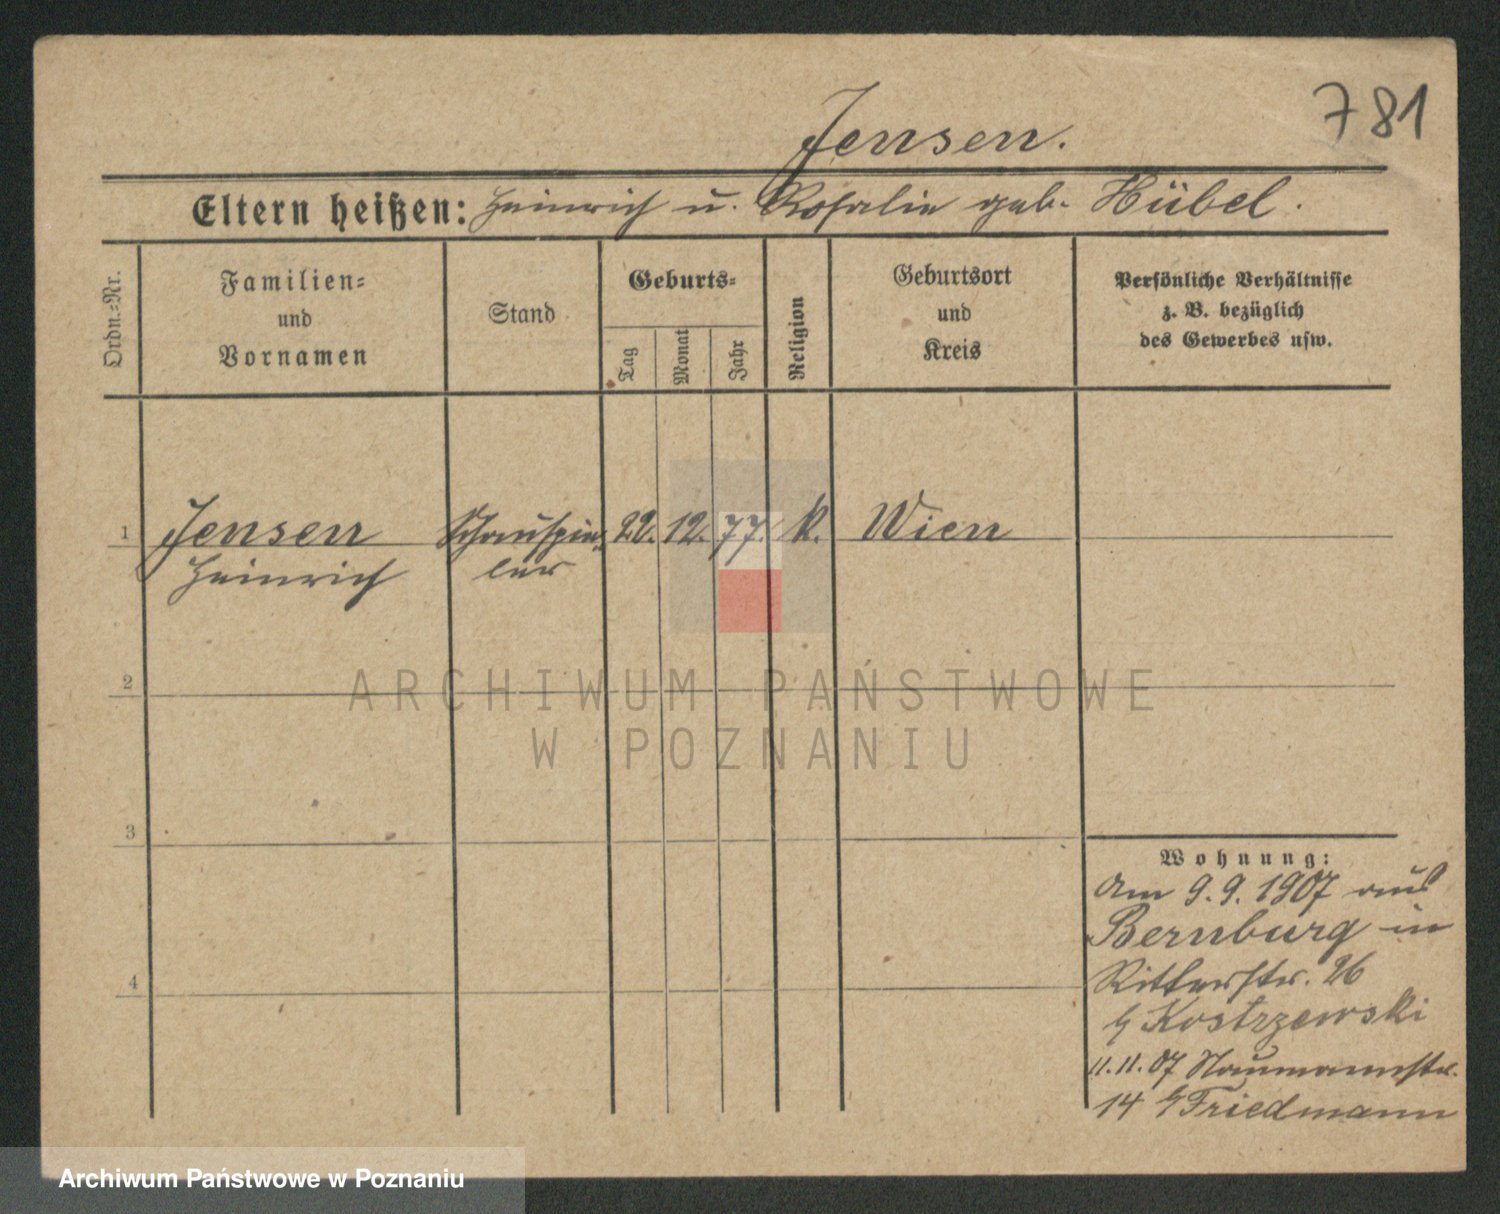 781
Jensen.
Eltern heißen: Heinrich u. Rosalie geb. Hübel.
Ordn.=Nr.
Familien=
und
Vornamen
Stand
Geburts=
Tag
Monat
Jahr
Religion
Geburtsort
und
Kreis
Persönliche Verhältnisse
z. B. bezüglich
des Gewerbes usw.
1 Jensen Schauspie= 22. 12. 77. k. Wien
Heinrich ler
2
ARCHIWUM PAŃSTWOWE
W POZNANIU
3
Wohnung:
Am 9.9.1907 aus
Bernburg in
4
Ritterstr. 26
b/ Kostrzewski
11.11.07 Naumannstr.
14 b/ Friedmann
Archiwum Państwowe w Poznaniu